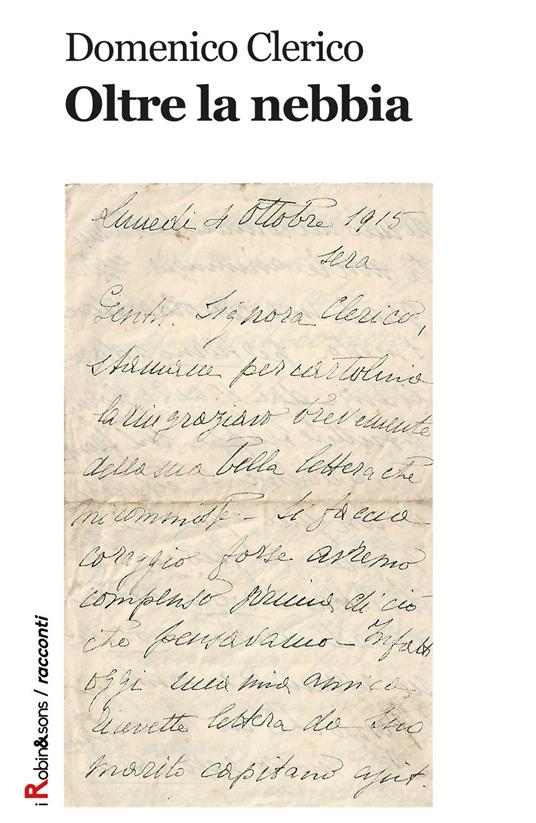 Domenico Clerico
Oltre la nebbia
Lunedì 4 Ottobre 1915
sera
Gentil. Signora Clerico,
stamane per cartolina
la ringraziavo brevemente
della sua bella lettera che
mi commosse - Si faccia
coraggio forse avremo
compenso prima di ciò
che pensavamo - Infatti
oggi una mia amica
ricevette lettera da suo
marito capitano
i Robin&sons / racconti